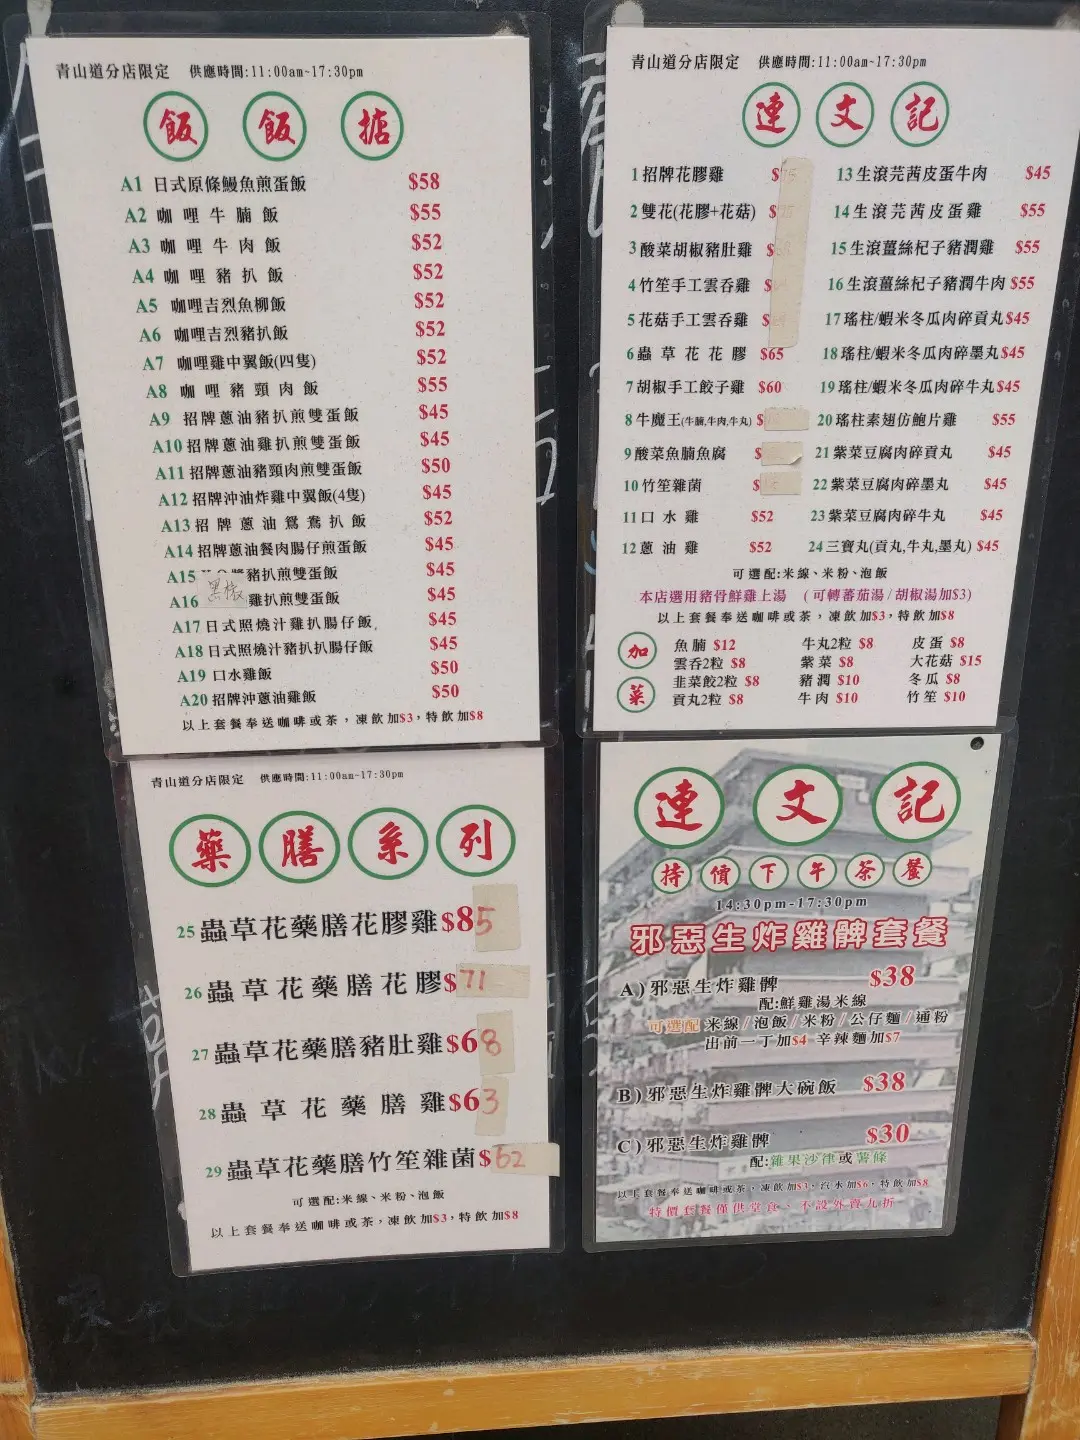 青山道分店限定 供應時間:11:00am~17:30pm
飯飯掂
A1 日式原條鰻魚煎蛋飯 $58
A2 咖哩牛腩飯 $55
A3 咖哩牛肉飯 $52
A4 咖哩豬扒飯 $52
A5 咖哩吉烈魚柳飯 $52
A6 咖哩吉烈豬扒飯 $52
A7 咖哩雞中翼飯(四隻) $52
A8 咖哩豬頸肉飯 $55
A9 招牌蔥油豬扒煎雙蛋飯 $45
A10 招牌蔥油雞扒煎雙蛋飯 $45
A11 招牌蔥油豬頸肉煎雙蛋飯 $50
A12 招牌沖油炸雞中翼飯(4隻) $45
A13 招牌蔥油鴛鴦扒飯 $52
A14 招牌蔥油餐肉腸仔煎蛋飯 $45
A15 豬扒煎雙蛋飯 $45
A16 黑椒雞扒煎雙蛋飯 $45
A17 日式照燒汁雞扒腸仔飯 $45
A18 日式照燒汁豬扒扒腸仔飯 $45
A19 口水雞飯 $50
A20 招牌沖蔥油雞飯 $50
以上套餐奉送咖啡或茶，凍飲加$3，特飲加$8
青山道分店限定 供應時間:11:00am~17:30pm
連文記
1 招牌花膠雞 $
2 雙花(花膠+花菇) $
3 酸菜胡椒豬肚雞 $
4 竹笙手工雲吞雞 $
5 花菇手工雲吞雞 $
6 蟲草花花膠 $65
7 胡椒手工餃子雞 $60
8 牛魔王(牛腩,牛肉,牛丸) $
9 酸菜魚腩魚腐 $
10 竹笙雜菌 $
11 口水雞 $52
12 蔥油雞 $52
13 生滾芫茜皮蛋牛肉 $45
14 生滾芫茜皮蛋雞 $55
15 生滾薑絲杞子豬潤雞 $55
16 生滾薑絲杞子豬潤牛肉 $55
17 瑤柱/蝦米冬瓜肉碎貢丸 $45
18 瑤柱/蝦米冬瓜肉碎墨丸 $45
19 瑤柱/蝦米冬瓜肉碎牛丸 $45
20 瑤柱素翅仿鮑片雞 $55
21 紫菜豆腐肉碎貢丸 $45
22 紫菜豆腐肉碎墨丸 $45
23 紫菜豆腐肉碎牛丸 $45
24 三寶丸(貢丸,牛丸,墨丸) $45
可選配:米線、米粉、泡飯
本店選用豬骨鮮雞上湯 (可轉蕃茄湯/胡椒湯加$3)
以上套餐奉送咖啡或茶，凍飲加$3，特飲加$8
加菜
魚腩 $12 牛丸2粒 $8 皮蛋 $8
雲吞2粒 $8 紫菜 $8 大花菇 $15
韭菜餃2粒 $8 豬潤 $10 冬瓜 $8
貢丸2粒 $8 牛肉 $10 竹笙 $10
青山道分店限定 供應時間:11:00am~17:30pm
藥膳系列
25 蟲草花藥膳花膠雞 $85
26 蟲草花藥膳花膠 $71
27 蟲草花藥膳豬肚雞 $68
28 蟲草花藥膳雞 $63
29 蟲草花藥膳竹笙雜菌 $62
可選配:米線、米粉、泡飯
以上套餐奉送咖啡或茶，凍飲加$3，特飲加$8
連文記
持價下午茶餐
14:30pm-17:30pm
邪惡生炸雞髀套餐
A)邪惡生炸雞髀 $38
配:鮮雞湯米線
可選配 米線/泡飯/米粉/公仔麵/通粉
出前一丁加$4 辛辣麵加$7
B)邪惡生炸雞髀大碗飯 $38
C)邪惡生炸雞髀 $30
配:雜果沙律或薯條
以上套餐奉送咖啡或茶，凍飲加$3，汽水加$6，特飲加$8
特價套餐僅供堂食、不設外賣九折